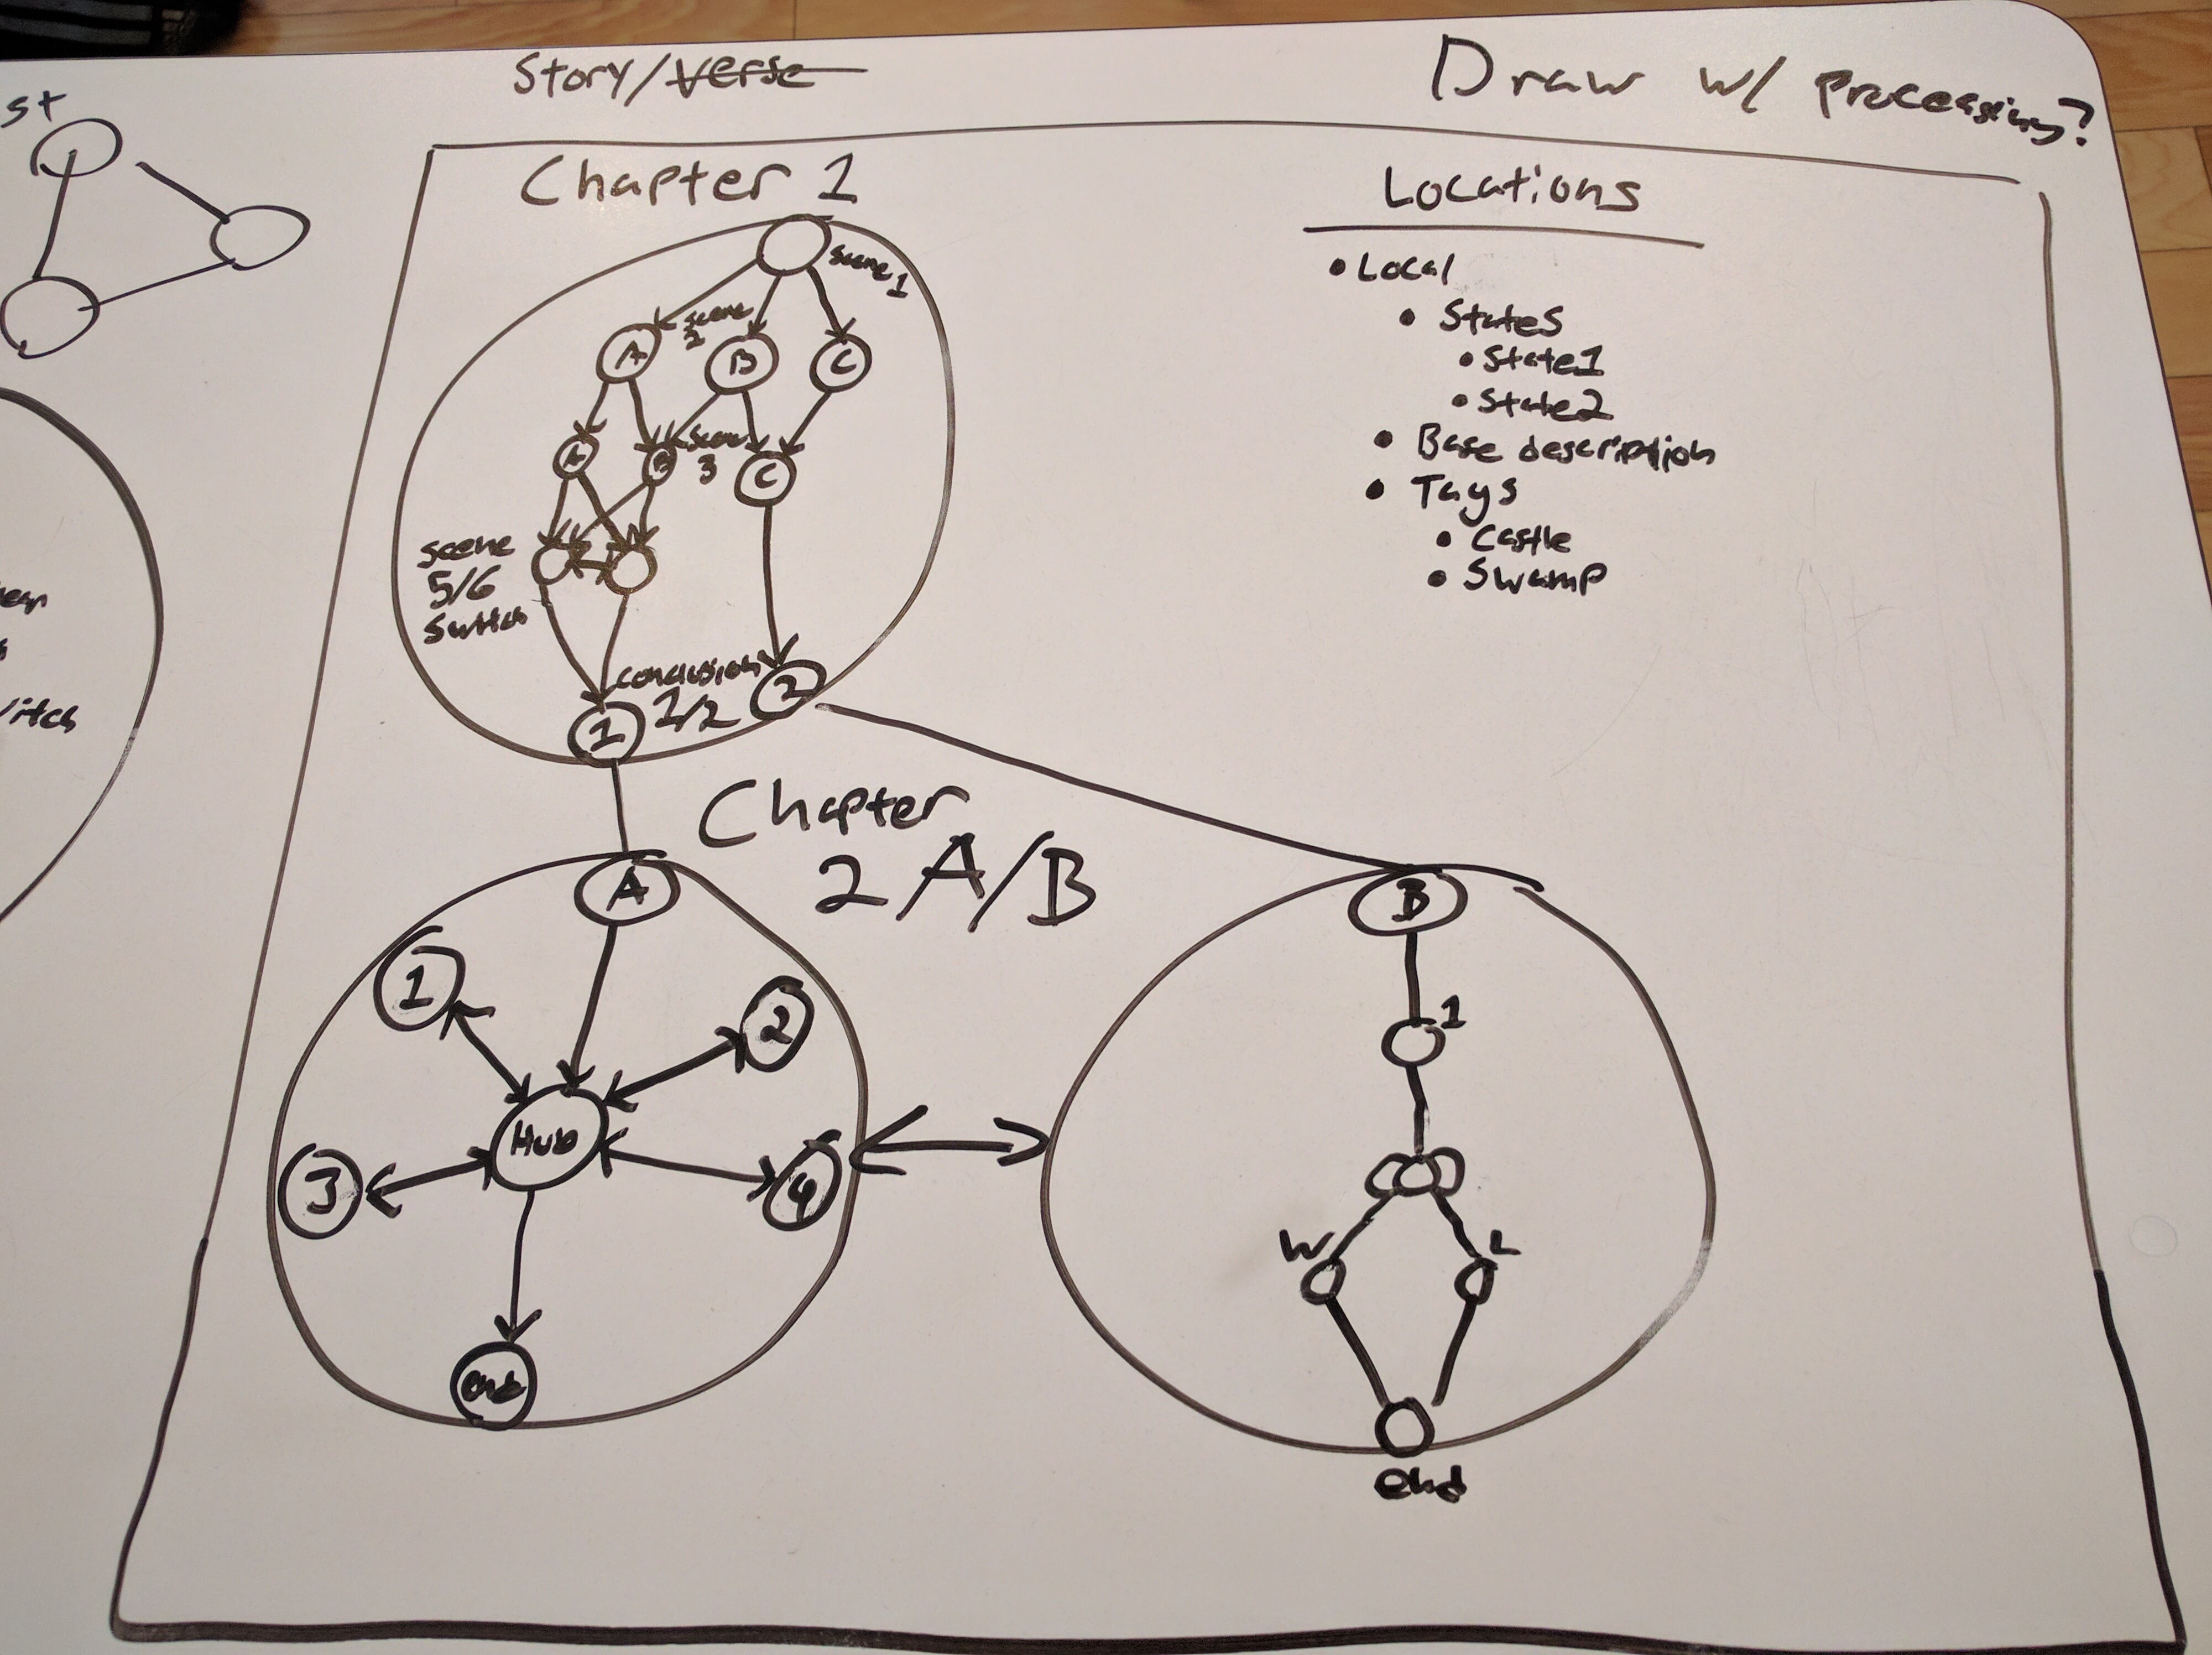 st
Story/Verse
Draw w/ Processing?
Chapter 1
scene 1
scene
2
A
B
C
A
B
scene
3
C
scene
5/6
Switch
conclusion
1/2
1
2
Locations
• Local
• States
• State1
• State2
• Base description
• Tags
• Castle
• Swamp
Chapter
2 A/B
A
1
2
Hub
3
4
end
B
1
W
L
end